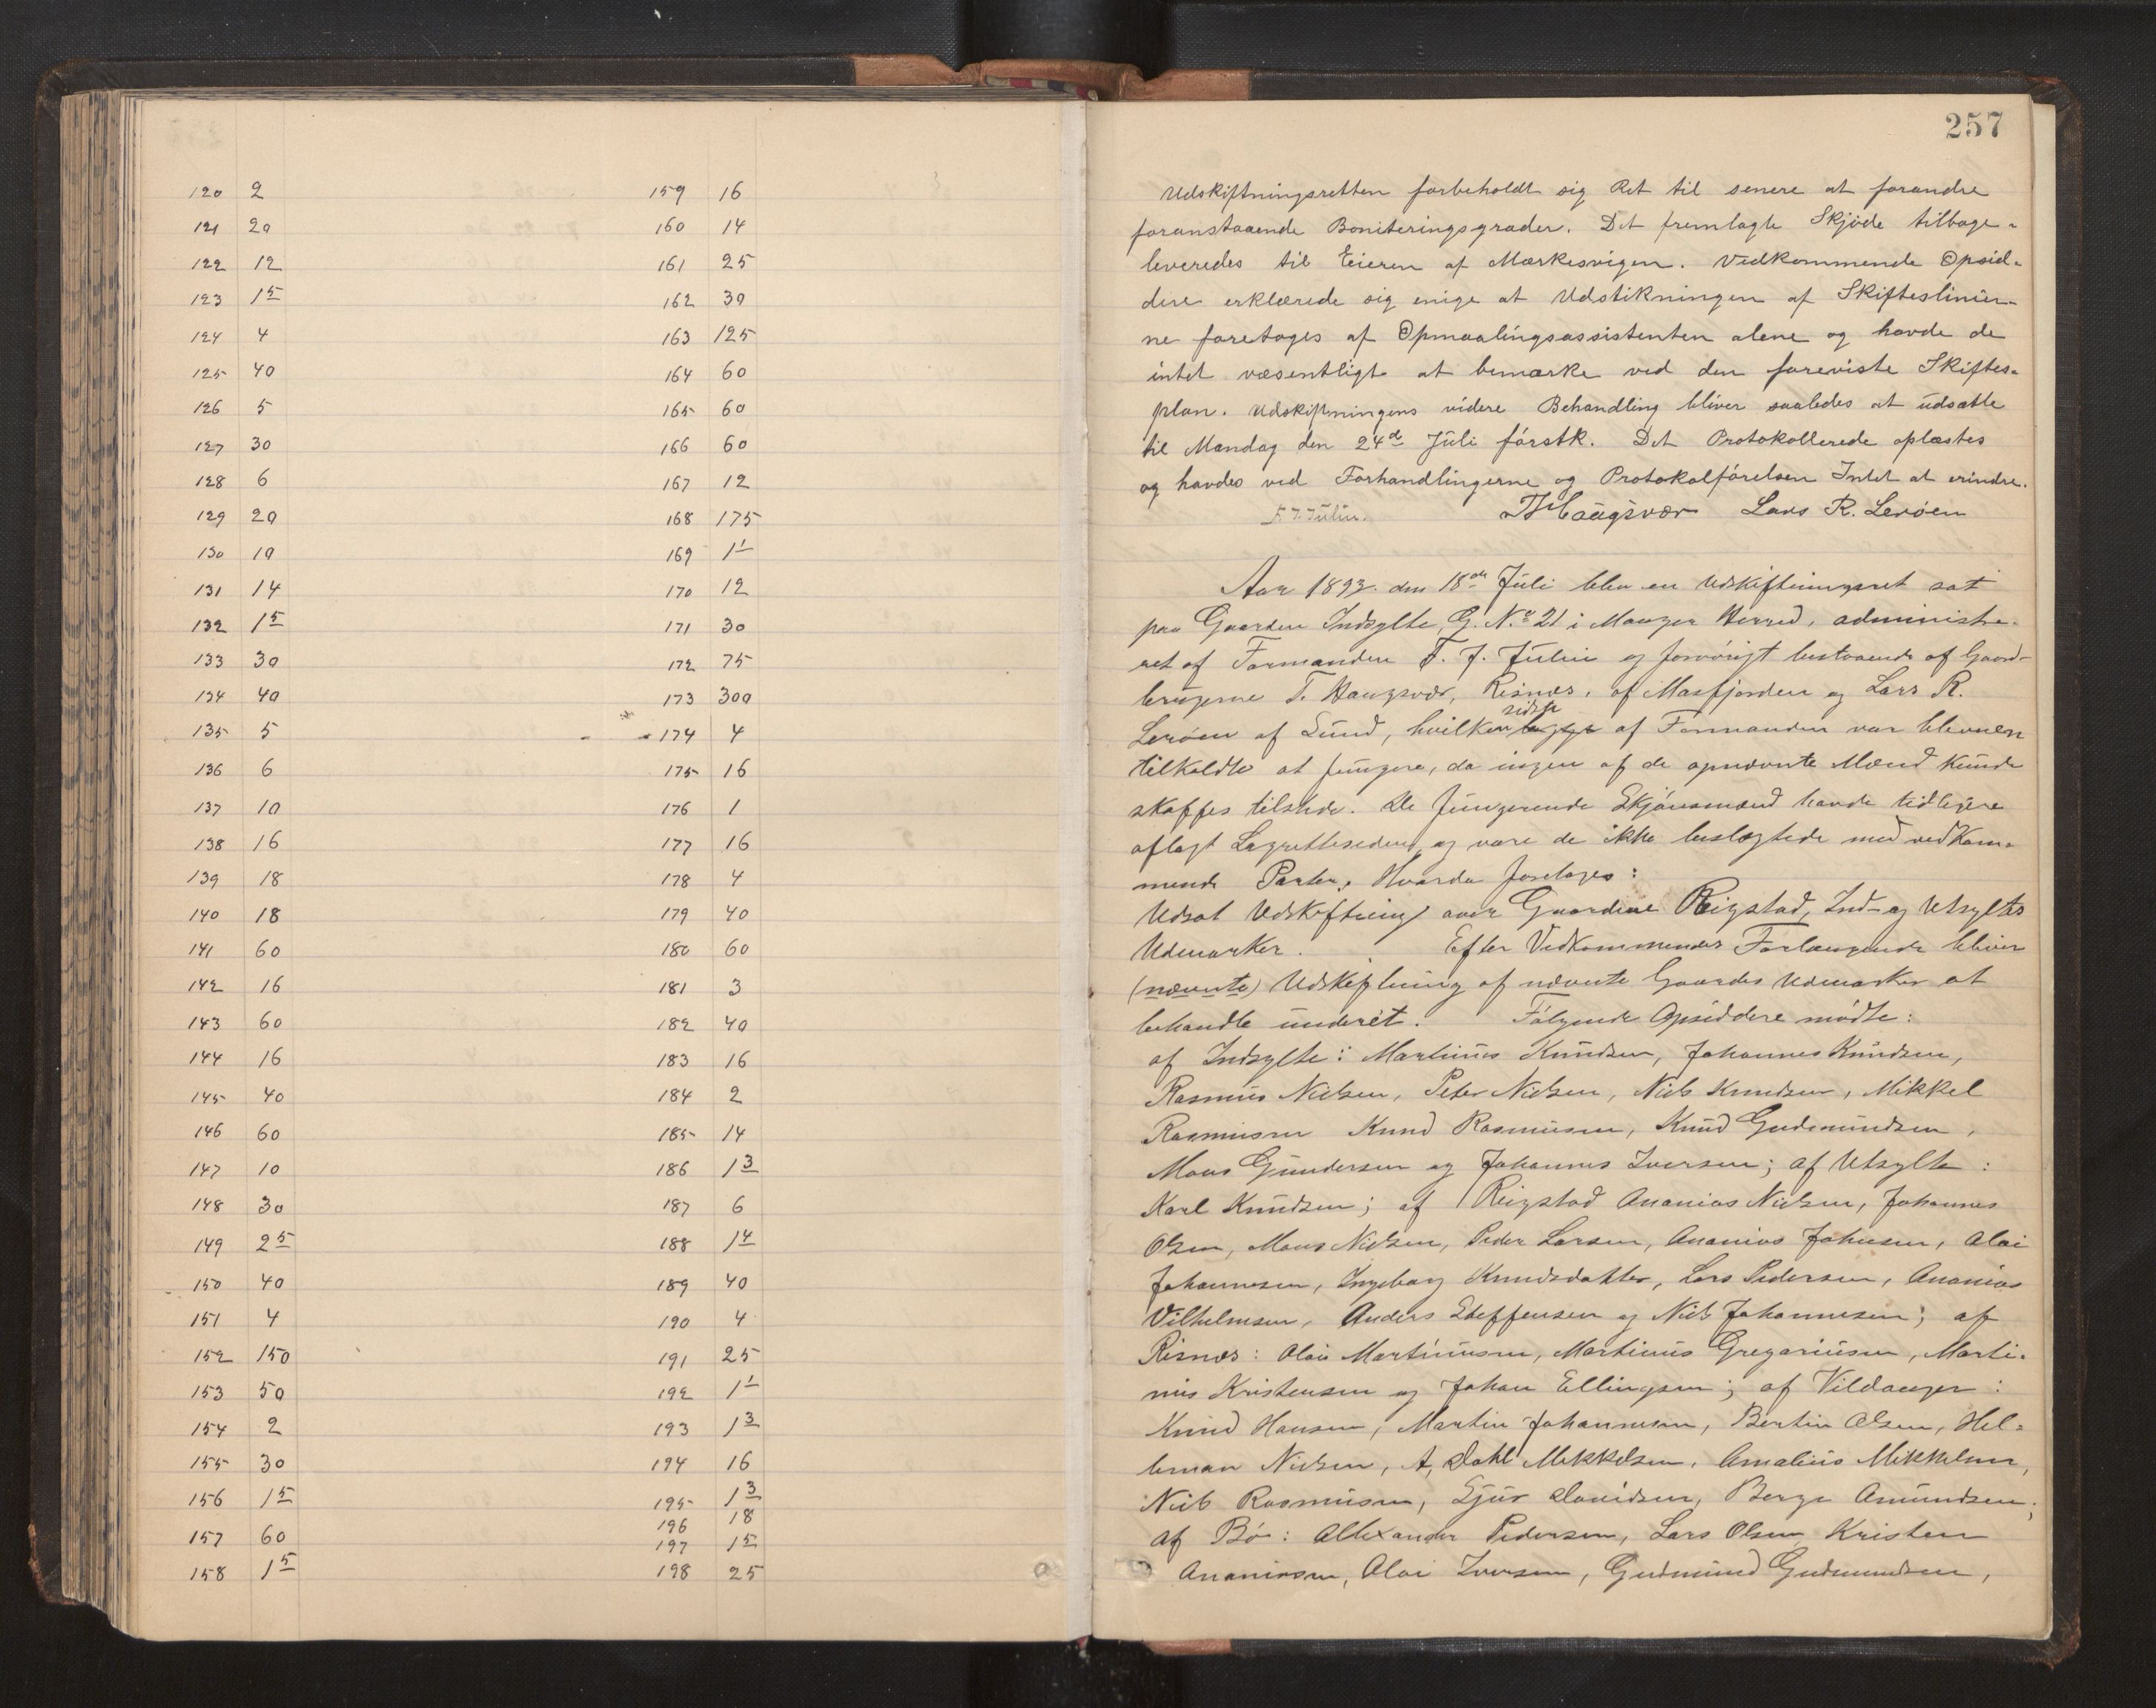 120 2
121 20
122 12
123 1 5
124 4
125 40
126 5
127 30
128 6
129 20
130 10
131 14
132 1 5
133 30
134 40
135 5
136 6
137 10
138 16
139 18
140 18
141 60
142 16
143 60
144 16
145 40
146 60
147 10
148 30
149 2 5
150 40
151 4
152 150
153 50
154 2
155 30
156 1 5
157 60
158 1 5
159 16
160 14
161 25
162 30
163 125
164 60
165 60
166 60
167 12
168 175
169 1 1
170 12
171 30
172 75
173 300
174 4
175 16
176 1
177 16
178 4
179 40
180 60
181 3
182 40
183 16
184 2
185 14
186 1 3
187 6
188 1 4
189 40
190 4
191 25
192 1 1
193 1 3
194 16
195 1 3
196 18
197 15
198 25
257
Udskiftningsretten forbeholdt sig Ret til senere at forandre
foranstaaende Boniteringsgrader. Det fremlagte Skjøde tilbage-
leveredes til Eieren af Mærkesvigen. Vedkommende Opsid-
dere erklærede sig enige at Udstikningen af Skifteslinier-
ne foretages af Opmaalingsassistenten alene og havde de
intet væsentligt at bemærke ved den foreviste Skiftes-
plan. Udskiftningens videre Behandling bliver saaledes at udsætte
til Mandag den 24de Juli førstk. Det Protokollerede oplæstes
og havdes ved Forhandlingerne og Protokolførelsen Intet at erindre.
F. J. Julin. T Haugsvær Lars R. Lerøen
Aar 1893 den 18de Juli blev en Udskiftningsret sat
paa Gaarden Indsylte, G. No 21 i Manger Herred, administre-
ret af Formanden F. J. Julin og forøvrigt bestaaende af Gaard-
brugerne T. Haugsvær, Risnes, af Masfjorden og Lars R.
Lerøen af Sund, hvilken sidste af Formanden var bleven
tilkaldte at fungere, da ingen af de opnævnte Mænd kunde
skaffes tilstede. De fungerende Skjønsmænd havde tidligere
aflagt Lagretteseden og vare de ikke beslægtede med vedkom-
mende Parter. Hvorda foretoges:
Udsat Udskiftning over Gaardene Rigstad, Ind- og Utsyltes
Udmarker. Efter Vedkommendes Forlangende bliver
(nævnte) Udskiftning af nævnte Gaardes Udmarker at
behandle underét. Følgende Opsiddere mødte:
af Indsylte: Martinus Knudsen, Johannes Knudsen,
Rasmus Nielsen, Peter Nielsen, Niels Knudsen, Mikkel
Rasmusen Knud Rasmusen, Knud Gudmundsen,
Mons Gundersen og Johannes Iversen; af Utsylte:
Karl Knudsen; af Rigstad Ananias Nielsen, Johannes
Olsen, Mons Nielsen, Peder Larsen, Ananias Johnsen, Olai
Johannesen, Ingeborg Knudsdatter, Lars Pedersen, Ananias
Vilhelmsen, Anders Steffensen og Niels Johannesen; af
Risnes: Olai Martinusen, Martinus Gregoriusen, Marti-
nus Kristensen og Johan Ellingsen; af Vildanger:
Knud Hansen, Martin Johannesen, Bertin Olsen, Hel-
leman Nielsen, A, Dahl Mikkelsen, Amalius Mikkelsen,
Niels Rasmusen, Sjur Davidsen, Berge Amundsen;
af Bø: Allexander Pedersen, Lars Olsen, Kristen
Ananiasen, Olai Iversen, Gudmund Gudmundsen,